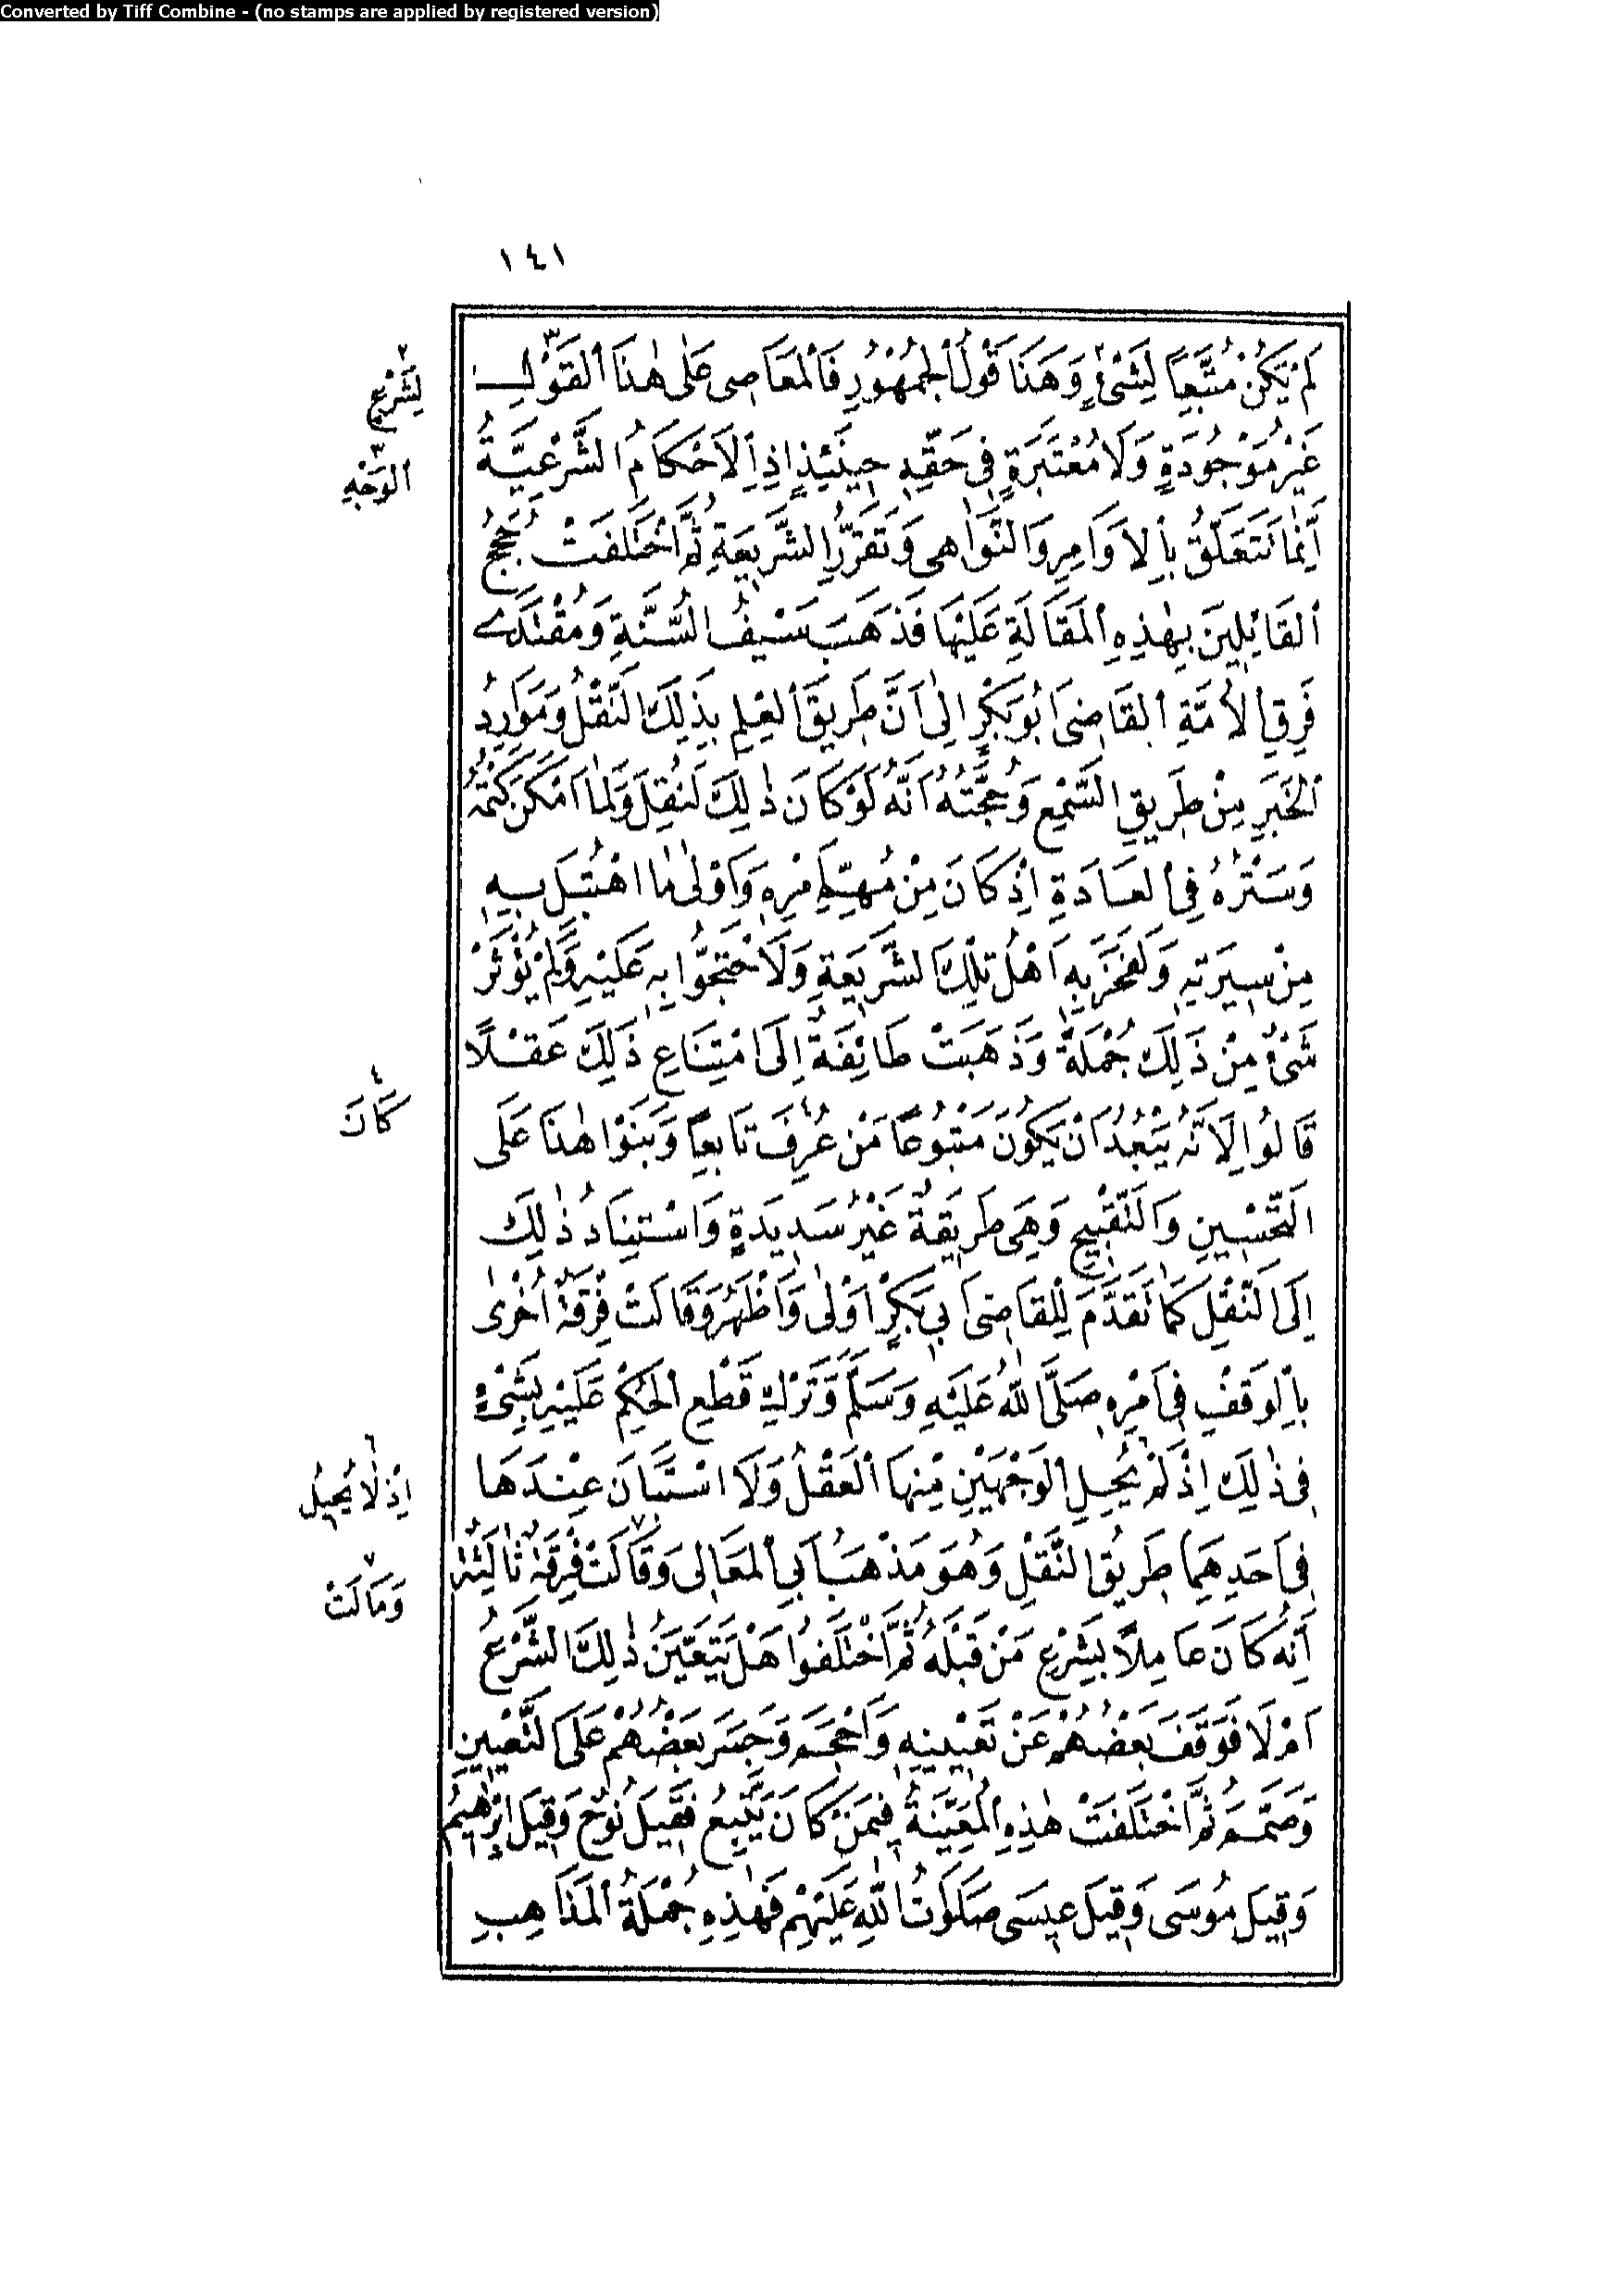 Converted by Tiff Combine - (no stamps are applied by registered version)
١٤١
لَمْ يَكُنْ مُتَّبِعاً لِشَىْءٍ٢ وَهَذَا قَوْلُ الْجُمْهُورِ فَالْمَعَاصِى عَلَى هٰذَا الْقَوْلِ٣
غَيْرُ مَوْجُودَةٍ وَلَا مُعْتَبَرَةٍ فِى حَقِّهِ حِينَئِذٍ اِذِ الْاَحْكَامُ الشَّرْعِيَّةُ
اِنَّمَا تَتَعَلَّقُ بِالْاَوَامِرِ وَالنَّوَاهِى وَتَقَرُّرِ الشَّرِيعَةِ ثُمَّ اخْتَلَفَتْ حُجَجُ
الْقَائِلِينَ بِهٰذِهِ الْمَقَالَةِ عَلَيْهَا فَذَهَبَ سَيْفُ السُّنَّةِ وَمُقْتَدَى
فِرَقِ الْاُمَّةِ الْقَاضِى اَبُو بَكْرٍ اِلٰى اَنَّ طَرِيقَ الْعِلْمِ بِذَلِكَ النَّقْلُ وَمَوَارِدُ
الْخَبَرِ مِنْ طَرِيقِ السَّمْعِ وَحُجَّتُهُ اَنَّهُ لَوْ كَانَ ذٰلِكَ لَنُقِلَ وَلَمَا اَمْكَنَ كَتْمُهُ
وَسَتْرُهُ فِى الْعَادَةِ اِذْ كَانَ مِنْ مُهِمِّ اَمْرِهِ وَاَوْلٰى مَا اهْتُبِلَ بِهِ
مِنْ سِيرَتِهِ وَلَفَخَرَ بِهِ اَهْلُ تِلْكَ الشَّرِيعَةِ وَلَاحْتَجُّوا بِهِ عَلَيْهِ وَلَمْ يُؤْثَرْ
شَىْءٌ مِنْ ذَلِكَ جُمْلَةً وَذَهَبَتْ طَائِفَةٌ اِلَى امْتِنَاعِ ذَلِكَ عَقْلًا
قَالُوا لِاَنَّهُ يَبْعُدُ اَنْ يَكُونَ مَتْبُوعاً مَنْ عُرِفَ٤ تَابِعاً وَبَنَوْا هٰذَا عَلَى
التَّحْسِينِ وَالتَّقْبِيحِ وَهِىَ طَرِيقَةٌ غَيْرُ سَدِيدَةٍ وَاسْتِنَادُ ذٰلِكَ
اِلَى النَّقْلِ كَمَا تَقَدَّمَ لِلْقَاضِى اَبِى بَكْرٍ اَوْلٰى وَاَظْهَرُ وَقَالَتْ فِرْقَةٌ اُخْرٰى
بِالْوَقْفِ فِى اَمْرِهِ صَلَّى اللّٰهُ عَلَيْهِ وَسَلَّمَ وَتَرْكِ قَطْعِ الْحُكْمِ عَلَيْهِ بِشَىْءٍ
فِى ذٰلِكَ اِذْ لَمْ يُحِلِ٦ الْوَجْهَيْنِ مِنْهَا الْعَقْلُ وَلَا اسْتَبَانَ عِنْدَهَا
فِى اَحَدِهِمَا طَرِيقُ النَّقْلِ وَهُوَ مَذْهَبُ اَبِى الْمَعَالِى وَقَالَتْ٧ فِرْقَةٌ ثَالِثَةٌ
اِنَّهُ كَانَ عَامِلًا بِشَرْعِ مَنْ قَبْلَهُ ثُمَّ اخْتَلَفُوا هَلْ يَتَعَيَّنُ ذٰلِكَ الشَّرْعُ
اَمْ لَا فَوَقَفَ بَعْضُهُمْ عَنْ تَعْيِينِهِ وَاَحْجَمَ وَجَسَرَ بَعْضُهُمْ عَلَى التَّعْيِينِ
وَصَمَّمَ ثُمَّ اخْتَلَفَتْ هٰذِهِ الْمُعَيِّنَةُ فِيمَنْ كَانَ يَتَّبِعُ فَقِيلَ نُوحٌ وَقِيلَ اِبْرٰهِيمُ
وَقِيلَ مُوسَى وَقِيلَ عِيسَى صَلَوَاتُ اللّٰهِ عَلَيْهِمْ فَهٰذِهِ جُمْلَةُ الْمَذَاهِبِ
٢ لِشَرْعٍ
٣ الْوَجْهِ
٤ كَانَ
٦ اِذْ لَا يُحِيلُ
٧ وَمَالَتْ